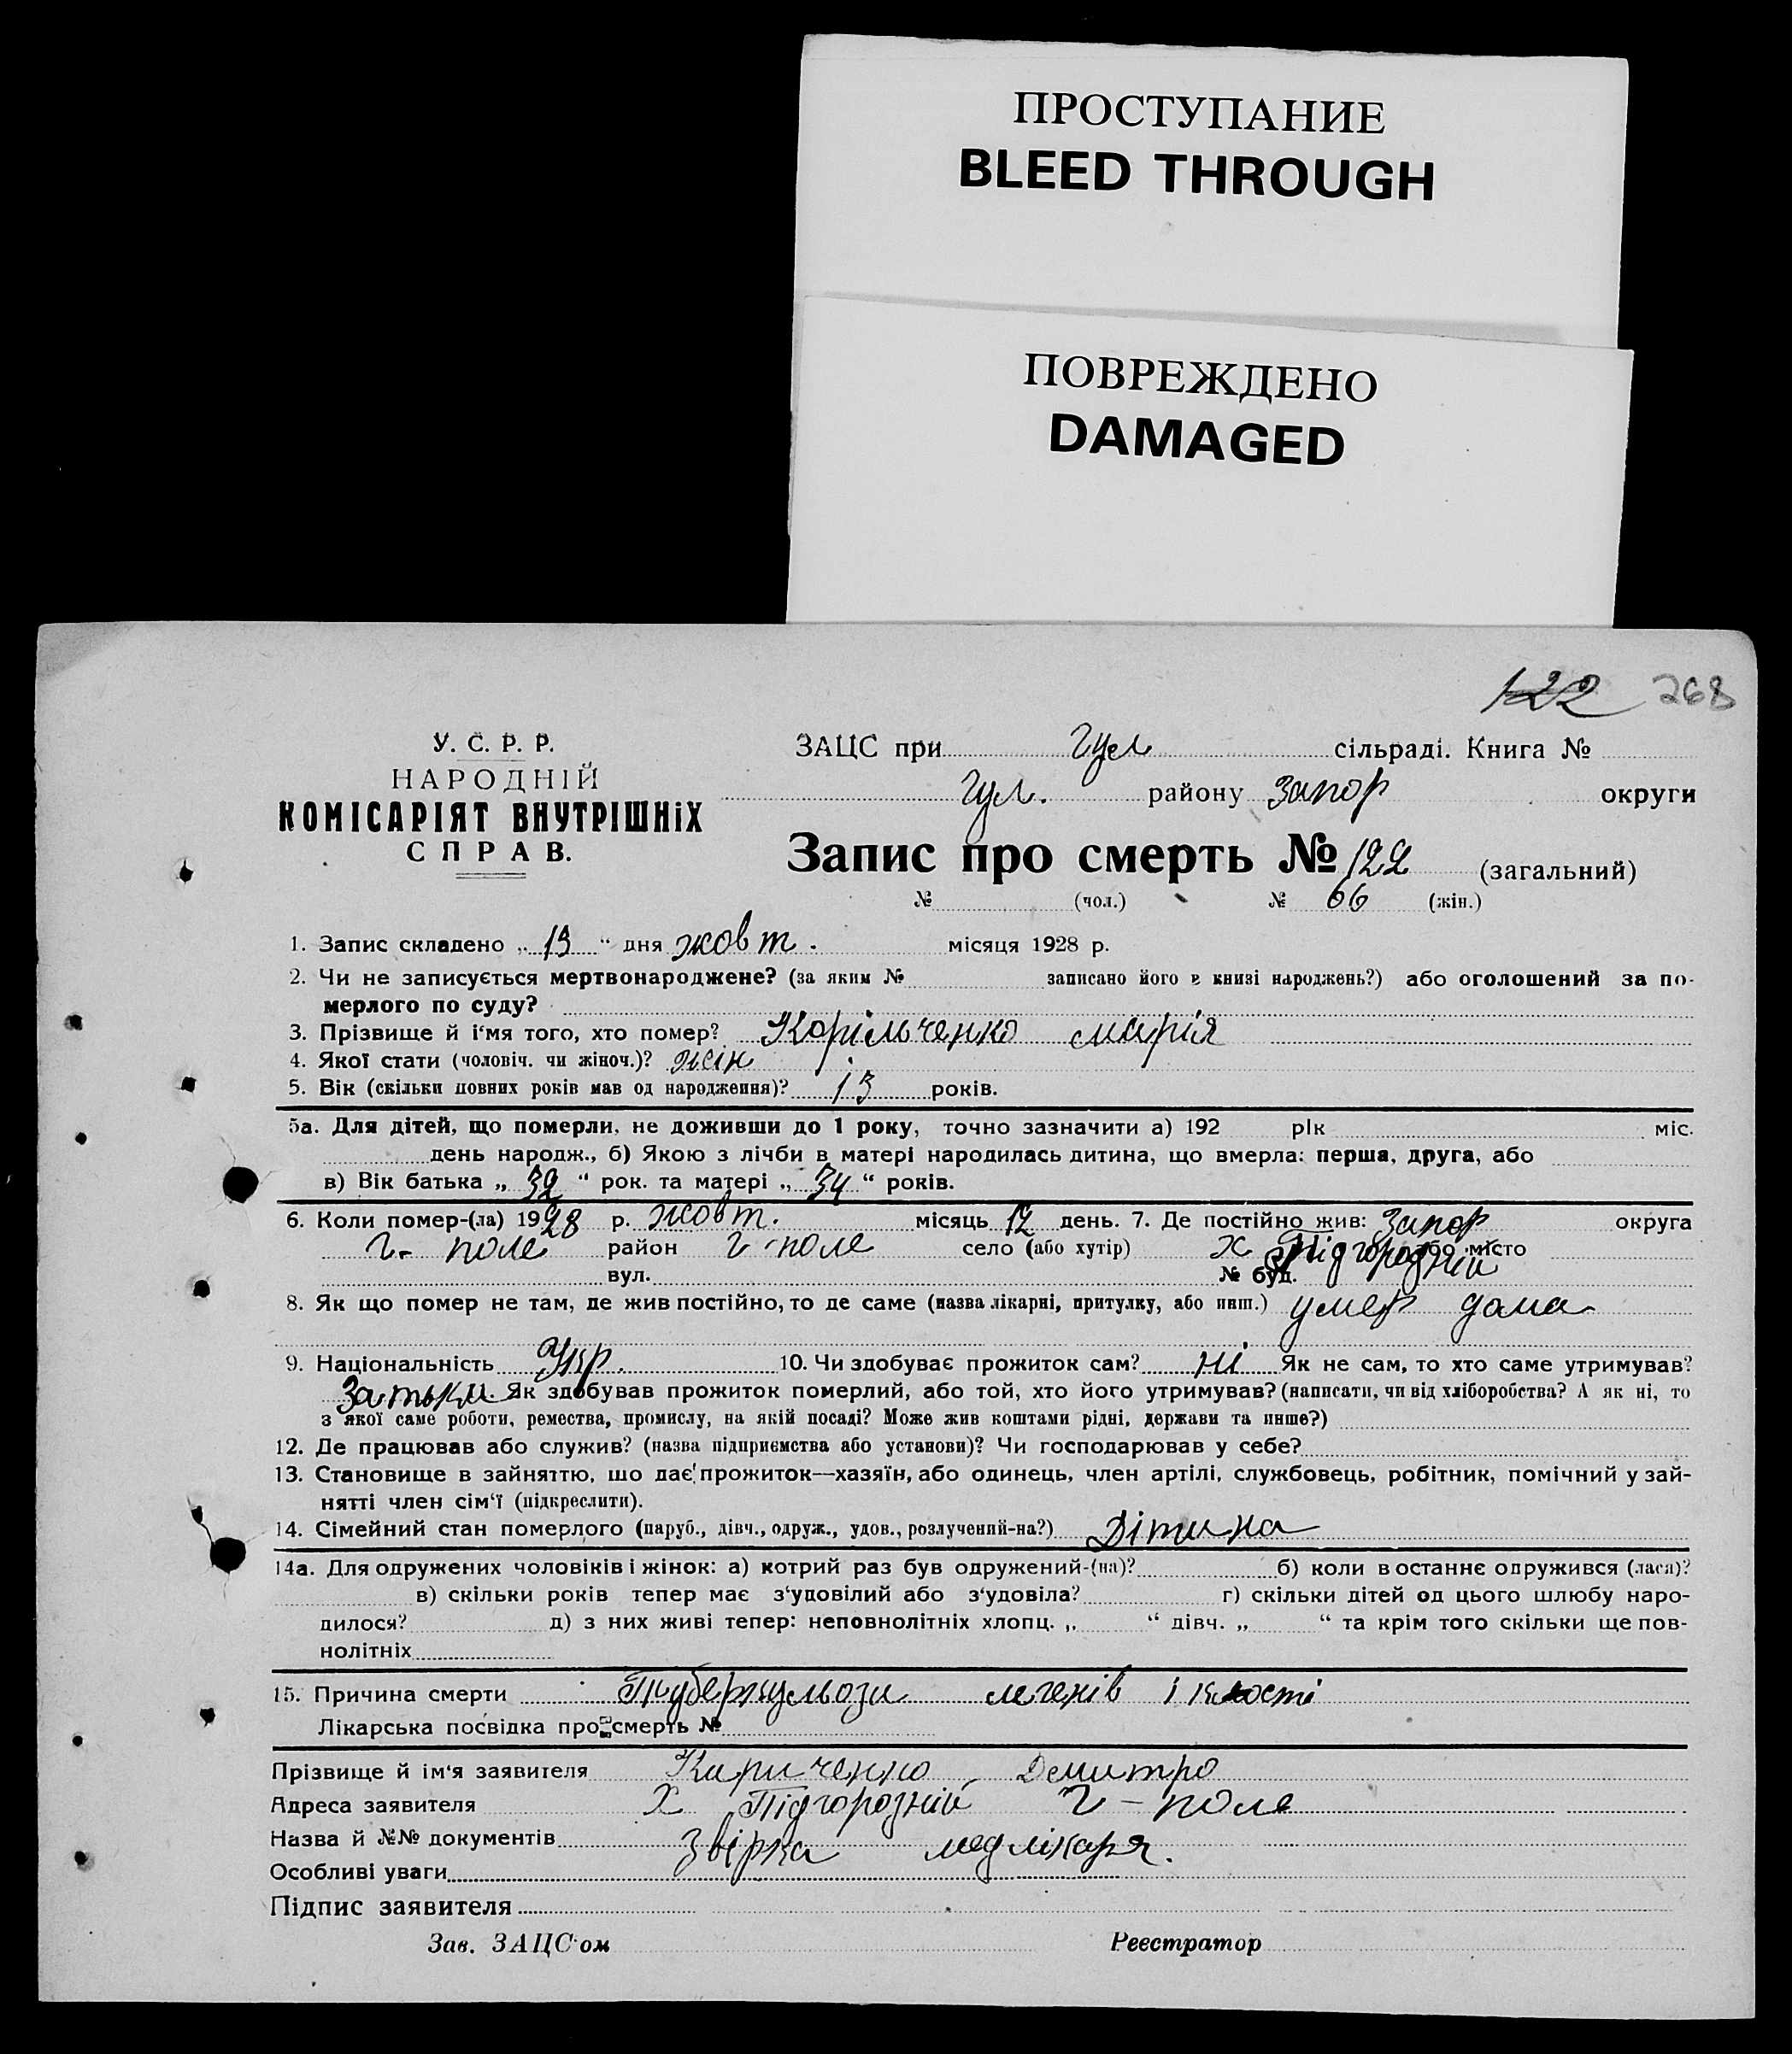 ПРОСТУПАНИЕ
BLEED THROUGH
ПОВРЕЖДЕНО
DAMAGED
122 268
У. С. Р. Р.
НАРОДНІЙ
КОМІСАРІЯТ ВНУТРІШНіХ
СПРАВ.
ЗАЦС при Гул сільраді. Книга №
Гул. району Запор округи
Запис про смерть № 122 (загальний)
№ (чол.) № 66 (жін.)
1. Запис складено „ 13 “ дня жовт. місяця 1928 р.
2. Чи не записується мертвонароджене? (за яким № записано його в книзі народжень?) або оголошений за по-
мерлого по суду?
3. Прізвище й і‘мя того, хто помер? Марія
4. Якої стати (чоловіч. чи жіноч.)? жін
5. Вік (скільки повних років мав од народження)? 13 років.
5а. Для дітей, що померли, не доживши до 1 року, точно зазначити а) 192 рік міс.
день народж., б) Якою з лічби в матері народилась дитина, що вмерла: перша, друга, або
в) Вік батька „ 32 “ рок. та матері „ 34 “ років.
6. Коли помер-(ла) 1928 р. жовт. місяць 12 день. 7. Де постійно жив: Запор округа
Г- поле район Г-поле село (або хутір) х Підгородній або місто
вул. № буд.
8. Як що помер не там, де жив постійно, то де саме (назва лікарні, притулку, або инш.) умер дома
9. Національність Укр. 10. Чи здобуває прожиток сам? ні Як не сам, то хто саме утримував?
Як здобував прожиток померлий, або той, хто його утримував? (написати, чи від хліборобства? А як ні, то
з якої саме роботи, ремества, промислу, на якій посаді? Може жив коштами рідні, держави та инше?)
12. Де працював або служив? (назва підприємства або установи)? Чи господарював у себе?
13. Становище в зайняттю, що дає прожиток—хазяїн, або одинець, член артілі, службовець, робітник, помічний у зай-
нятті член сім‘ї (підкреслити).
14. Сімейний стан померлого (паруб., дівч., одруж., удов., розлучений-на?) Дітина
14а. Для одружених чоловіків і жінок: а) котрий раз був одружений-(на)? б) коли в останнє одружився (лася)?
в) скільки років тепер має з‘удовілий або з‘удовіла? г) скільки дітей од цього шлюбу наро-
дилося? д) з них живі тепер: неповнолітніх хлопц. „ “ дівч. „ “ та крім того скільки ще пов-
нолітніх
15. Причина смерти Туберкульози легенів і кості
Лікарська посвідка про смерть №
Прізвище й ім‘я заявителя Кириченко Демитро
Адреса заявителя Х Підгородній Г-поле
Назва й №№ документів медлікаря.
Особливі уваги
Підпис заявителя
Зав. ЗАЦС‘ом Реєстратор